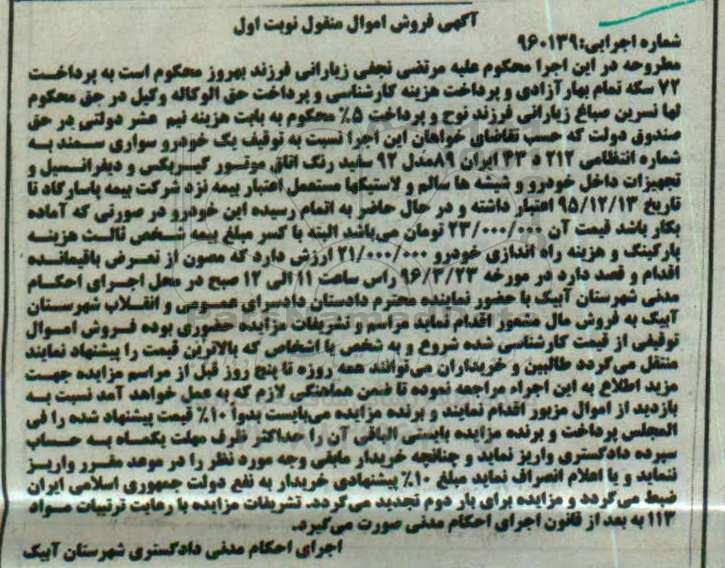 آگهی فروش اموال منقول نوبت اول
شماره اجرایی:۹۶۰۱۳۹
مطروحه در این اجرا محکوم علیه مرتضی نجفی زیارانی فرزند بهروز محکوم است به پرداخت
۷۲ سکه تمام بهارآزادی و پرداخت هزینه کارشناسی و پرداخت حق الوکاله وکیل در حق محکوم
لها نسرین صباغ زیارانی فرزند نوح و پرداخت ۵٪ محکوم به بابت هزینه نیم عشر دولتی در حق
صندوق دولت که حسب تقاضای خواهان این اجرا نسبت به توقیف یک خودرو سواری سمند به
شماره انتظامی ۲۱۲ د ۴۳ ایران ۸۹مدل ۹۲ سفید رنگ اتاق موتور گیربکس و دیفرانسیل و
تجهیزات داخل خودرو و شیشه ها سالم و لاستیکها مستعمل اعتبار بیمه نزد شرکت بیمه پاسارگاد تا
تاریخ ۹۵/۱۲/۱۳ اعتبار داشته و در حال حاضر به اتمام رسیده این خودرو در صورتی که آماده
بکار باشد قیمت آن ۲۳/۰۰۰/۰۰۰ تومان می‌باشد البته با کسر مبلغ بیمه شخص ثالث هزینه
پارکینگ و هزینه راه اندازی خودرو ۲۱/۰۰۰/۰۰۰ ارزش دارد که مصون از تعرض باقیمانده
اقدام و قصد دارد در مورخه ۹۶/۳/۲۳ راس ساعت ۱۱ الی ۱۲ صبح در محل اجرای احکام
مدنی شهرستان آبیک با حضور نماینده محترم دادستان دادسرای عمومی و انقلاب شهرستان
آبیک به فروش مال مذبور اقدام نماید مراسم و تشریفات مزایده حضوری بوده فروش اموال
توقیفی از قیمت کارشناسی شده شروع و به شخص یا اشخاص که بالاترین قیمت را پیشنهاد نمایند
منتقل می‌گردد طالبین و خریداران می‌توانند همه روزه تا پنج روز قبل از مراسم مزایده جهت
مزید اطلاع به این اجراء مراجعه نموده تا ضمن هماهنگی لازم که به عمل خواهد آمد نسبت به
بازدید از اموال مزبور اقدام نمایند و برنده مزایده می‌بایست بدوا ۱۰٪ قیمت پیشنهاد شده را فی
المجلس پرداخت و برنده مزایده بایستی الباقی آن را حداکثر ظرف مهلت یکماه به حساب
سپرده دادگستری واریز نماید و چنانچه خریدار مابقی وجه مورد نظر را در موعد مقرر واریز
ننماید و یا اعلام انصراف نماید مبلغ ۱۰٪ پیشنهادی خریدار به نفع دولت جمهوری اسلامی ایران
ضبط می‌گردد و مزایده برای بار دوم تجدید می‌گردد. تشریفات مزایده با رعایت ترتیبات مواد
۱۱۳ به بعد از قانون اجرای احکام مدنی صورت می‌گیرد.
اجرای احکام مدنی دادگستری شهرستان آبیک